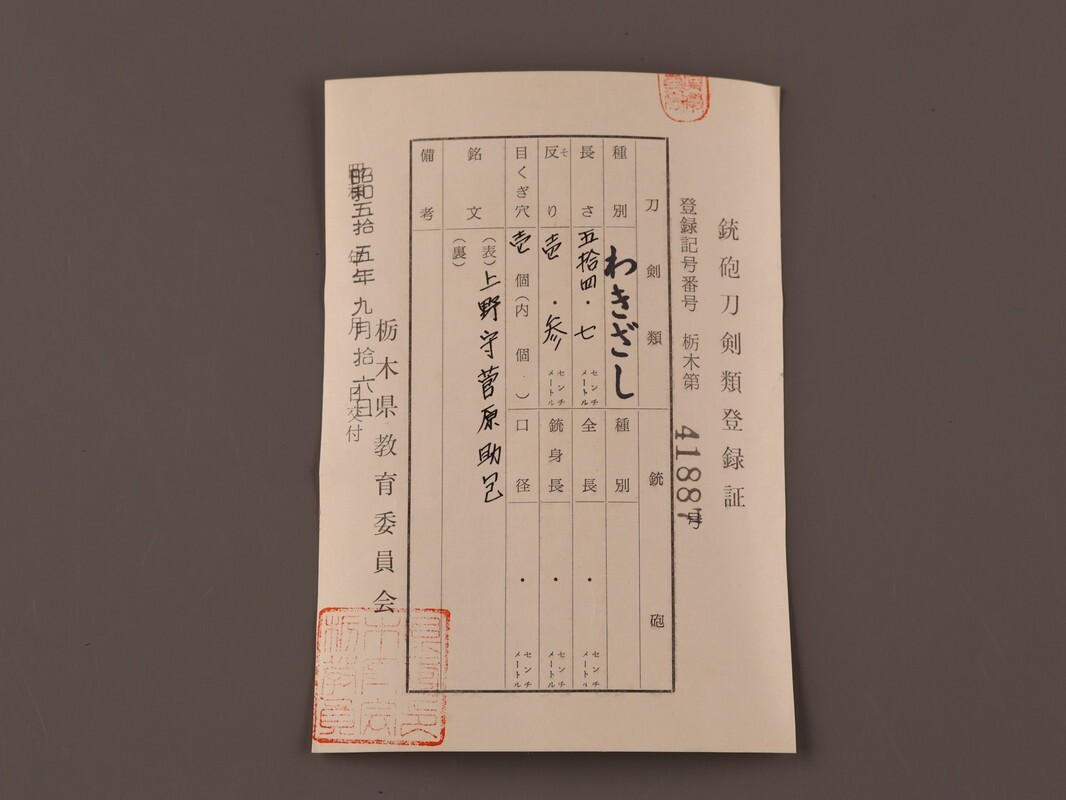 銃砲刀剣類登録証
登録記号番号 栃木第 41887号
刀剣類
種別 わきざし
長さ 五拾四・七 センチメートル
反り 壱・参 センチメートル
そ
目くぎ穴 壱個(内 個)
銘文 (表)上野守菅原助包
(裏)
備考
銃砲
種別
全長 ・ センチメートル
銃身長 ・ センチメートル
口径 ・ センチメートル
昭和五拾五年九月拾六日交付
栃木県教育委員会